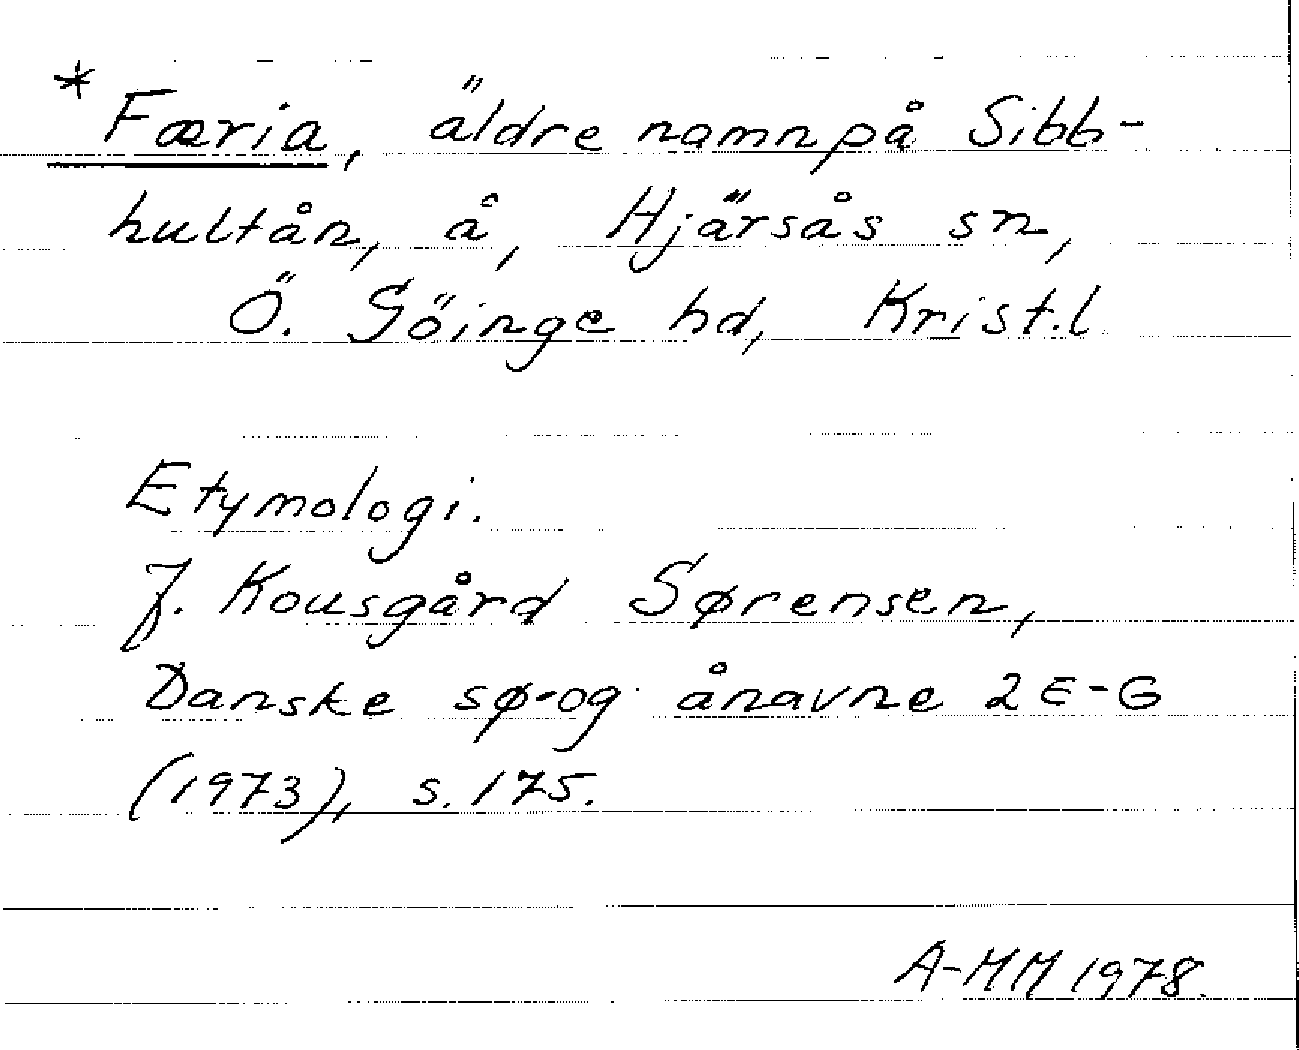 * Færia, äldre namn på Sibb-
hultån, å, Hjärsås sn,
Ö. Göinge hd, Krist.l
Etymologi.
J. Kousgård Sørensen,
Danske sø- og ånavne 2 E-G
(1973), s. 175.
A-MM 1978.